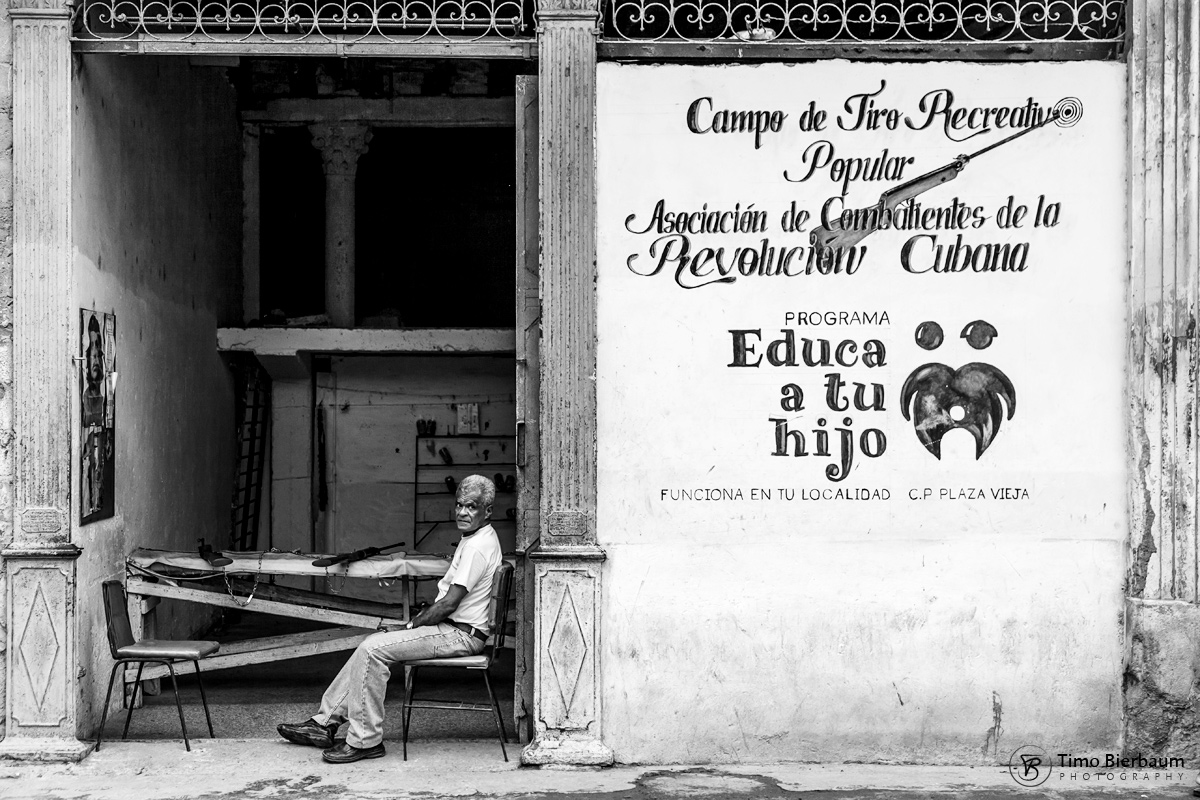 Campo de Tiro Recreativo
Popular
Asociación de Combatientes de la
Revolución Cubana
PROGRAMA
Educa
a tu
hijo
FUNCIONA EN TU LOCALIDAD C.P PLAZA VIEJA
Timo Bierbaum
PHOTOGRAPHY